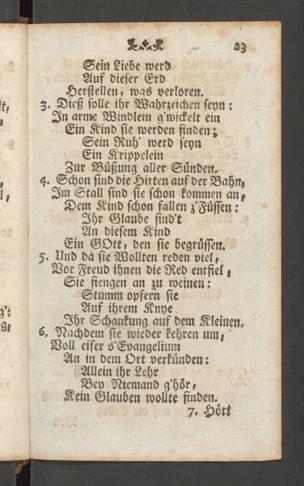 23
Sein Liebe werd
Auf dieser Erd
Herstellen, was verloren.
3. Dieß solle ihr Wahrzeichen seyn:
In arme Windlein g'wickelt ein
Ein Kind sie werden finden;
Sein Ruh' werd seyn
Ein Krippelein
Zur Büßung aller Sünden.
4. Schon sind die Hirten auf der Bahn,
Im Stall sind sie schon kommen an,
Dem Kind schon fallen z'Füssen:
Ihr Glaube find't
An diesem Kind
Ein GOtt, den sie begrüssen.
5. Und da sie Wollten reden viel,
Vor Freud ihnen die Red entfiel,
Sie fiengen an zu weinen:
Stumm opfern sie
Auf ihrem Knye
Ihr Schankung auf dem Kleinen.
6. Nachdem sie wieder kehren um,
Voll eifer s'Evangelium
An in dem Ort verkünden:
Allein ihr Lehr
Bey Niemand g'hör,
Kein Glauben wollte finden.
7. Hört